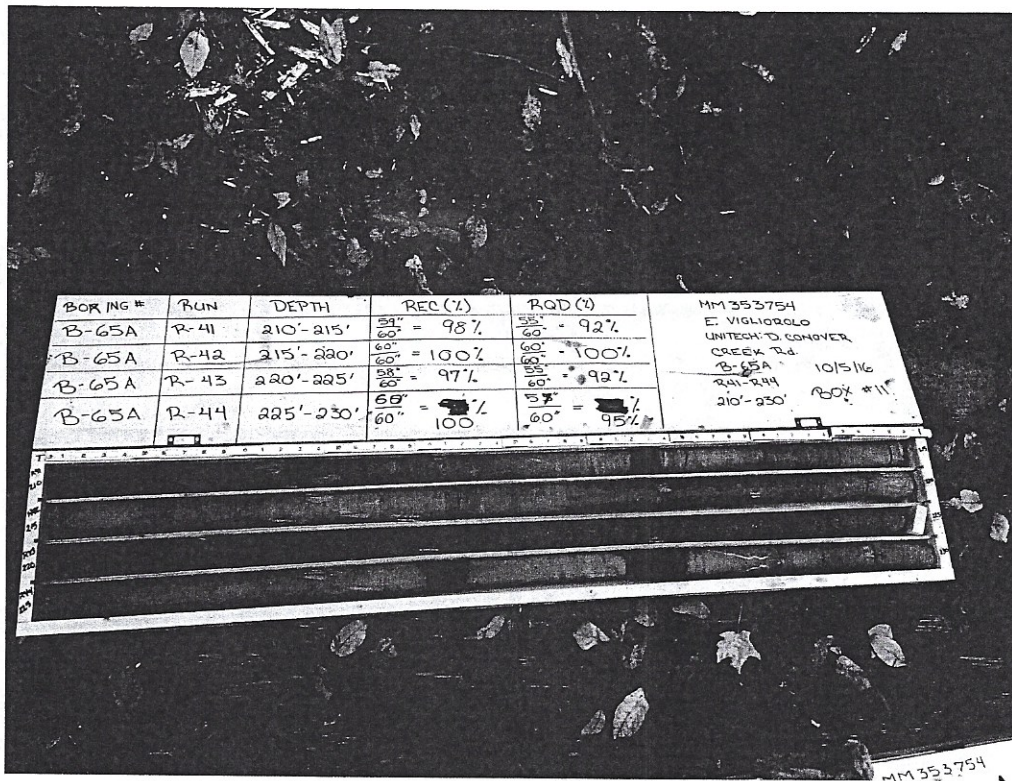 BORING # RUN DEPTH REC (%) RQD (%)
B-65A R-41 210'-215' 59"/60" = 98% 55"/60" = 92%
B-65A R-42 215'-220' 60"/60" = 100% 60"/60" = 100%
B-65A R-43 220'-225' 58"/60" = 97% 55"/60" = 92%
B-65A R-44 225'-230' 60" = % 57"/60" = %
100 95%
MM353754
E. VIGLIOROLO
UNITECH: D. CONOVER
CREEK Rd.
B-65A 10/5/16
R41-R44 BOX #11
210'-230'
210
215
220
225
MM353754